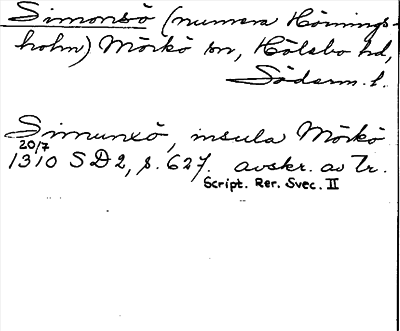 Simonsö (numera Hörnings-
holm) Mörkö sn, Hölebo hd,
Söderm. l.
Simunxö, insula Mörkö
20/7
1310 SD2, s. 627. avskr. av Tr.
Script. Rer. Svec. II